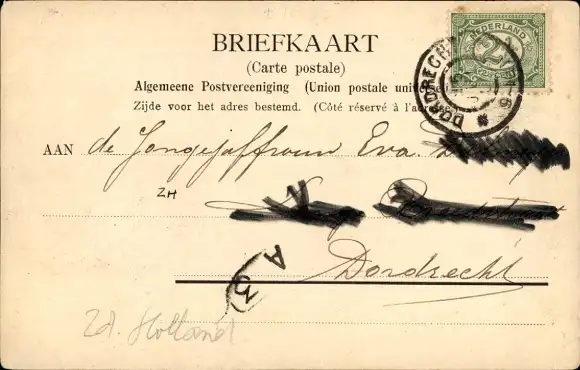 BRIEFKAART
(Carte postale)
Algemeene Postvereeniging (Union postale univers
Zijde voor het adres bestemd. (Côté réservé à l'adresse
NEDERLAND
DORDRECHT
AAN de Jongejuffrouw Eva
ZH
Dordrecht
A
3
Zd. Holland